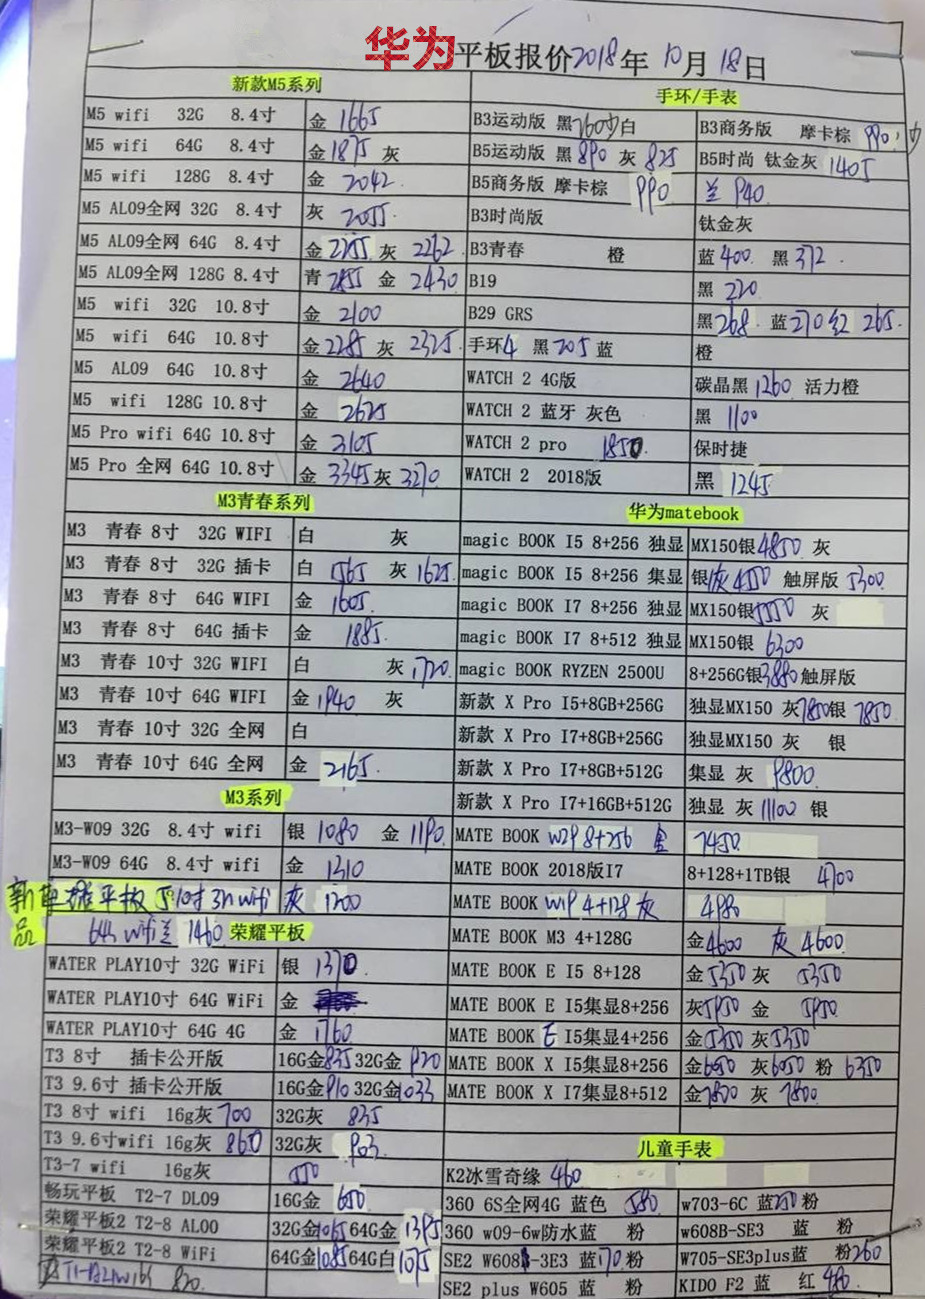 华为平板报价2018年10月18日
新款M5系列
M5 wifi 32G 8.4寸 金 1665
M5 wifi 64G 8.4寸 金1875 灰
M5 wifi 128G 8.4寸 金 2042
M5 AL09全网 32G 8.4寸 灰 2055
M5 AL09全网 64G 8.4寸 金 灰 2262
M5 AL09全网 128G 8.4寸 青 金 2430
M5 wifi 32G 10.8寸 金 2100
M5 wifi 64G 10.8寸 金2285 灰 2325
M5 AL09 64G 10.8寸 金 2640
M5 wifi 128G 10.8寸 金 2625
M5 Pro wifi 64G 10.8寸 金 3105
M5 Pro 全网 64G 10.8寸 金 3345灰 3270
M3青春系列
M3 青春 8寸 32G WIFI 白 灰
M3 青春 8寸 32G 插卡 白 1565 灰 1625
M3 青春 8寸 64G WIFI 金 1605
M3 青春 8寸 64G 插卡 金 1885
M3 青春 10寸 32G WIFI 白 灰 1720
M3 青春 10寸 64G WIFI 金 1940 灰
M3 青春 10寸 32G 全网 白
M3 青春 10寸 64G 全网 金 2165
M3系列
M3-W09 32G 8.4寸 wifi 银 1080 金 1190
M3-W09 64G 8.4寸 wifi 金 1310
新品 荣耀平板 5 10寸 wifi 灰 1200
wifi兰 1460 荣耀平板
WATER PLAY10寸 32G WiFi 银 1370
WATER PLAY10寸 64G WiFi 金
WATER PLAY10寸 64G 4G 金 1760
T3 8寸 插卡公开版 16G金835 32G金 920
T3 9.6寸 插卡公开版 16G金910 32G金1033
T3 8寸 wifi 16g灰 700 32G灰 835
T3 9.6寸wifi 16g灰 860 32G灰 903
T3-7 wifi 16g灰 550
畅玩平板 T2-7 DL09 16G金 650
荣耀平板2 T2-8 AL00 32G金1065 64G金 1395
荣耀平板2 T2-8 WiFi 64G金1085 64G白 1075
820
手环/手表
B3运动版 黑 白 B3商务版 摩卡棕 990
B5运动版 黑 890 灰 825 B5时尚 钛金灰 1405
B5商务版 摩卡棕 990 兰 940
B3时尚版 钛金灰
B3青春 橙 蓝 400 黑 372
B19 黑 220
B29 GRS 黑268 蓝270红 265
手环4 黑 205 蓝 橙
WATCH 2 4G版 碳晶黑 1260 活力橙
WATCH 2 蓝牙 灰色 黑 1100
WATCH 2 pro 1850 保时捷
WATCH 2 2018版 黑 1245
华为matebook
magic BOOK I5 8+256 独显 MX150银4850 灰
magic BOOK I5 8+256 集显 银灰 4550 触屏版 5300
magic BOOK I7 8+256 独显 MX150银5550 灰
magic BOOK I7 8+512 独显 MX150银 6300
magic BOOK RYZEN 2500U 8+256G银3880触屏版
新款 X Pro I5+8GB+256G 独显MX150 灰7850银 7850
新款 X Pro I7+8GB+256G 独显MX150 灰 银
新款 X Pro I7+8GB+512G 集显 灰 9800
新款 X Pro I7+16GB+512G 独显 灰 11100 银
MATE BOOK W29 8+256 金 7450
MATE BOOK 2018版I7 8+128+1TB银 4700
MATE BOOK W19 4+128 灰 4980
MATE BOOK M3 4+128G 金4600 灰 4600
MATE BOOK E I5 8+128 金5350灰 5350
MATE BOOK E I5集显8+256 灰5950 金 5950
MATE BOOK E I5集显4+256 金5350 灰5350
MATE BOOK X I5集显8+256 金6050 灰6050 粉 6350
MATE BOOK X I7集显8+512 金7800 灰 7800
儿童手表
K2冰雪奇缘 460
360 6S全网4G 蓝色 580 w703-6C 蓝250粉
360 w09-6w防水蓝 粉 w608B-SE3 蓝 粉
SE2 W608-3E3 蓝170粉 W705-SE3plus蓝 粉260
SE2 plus W605 蓝 粉 KIDO F2 蓝 红 480